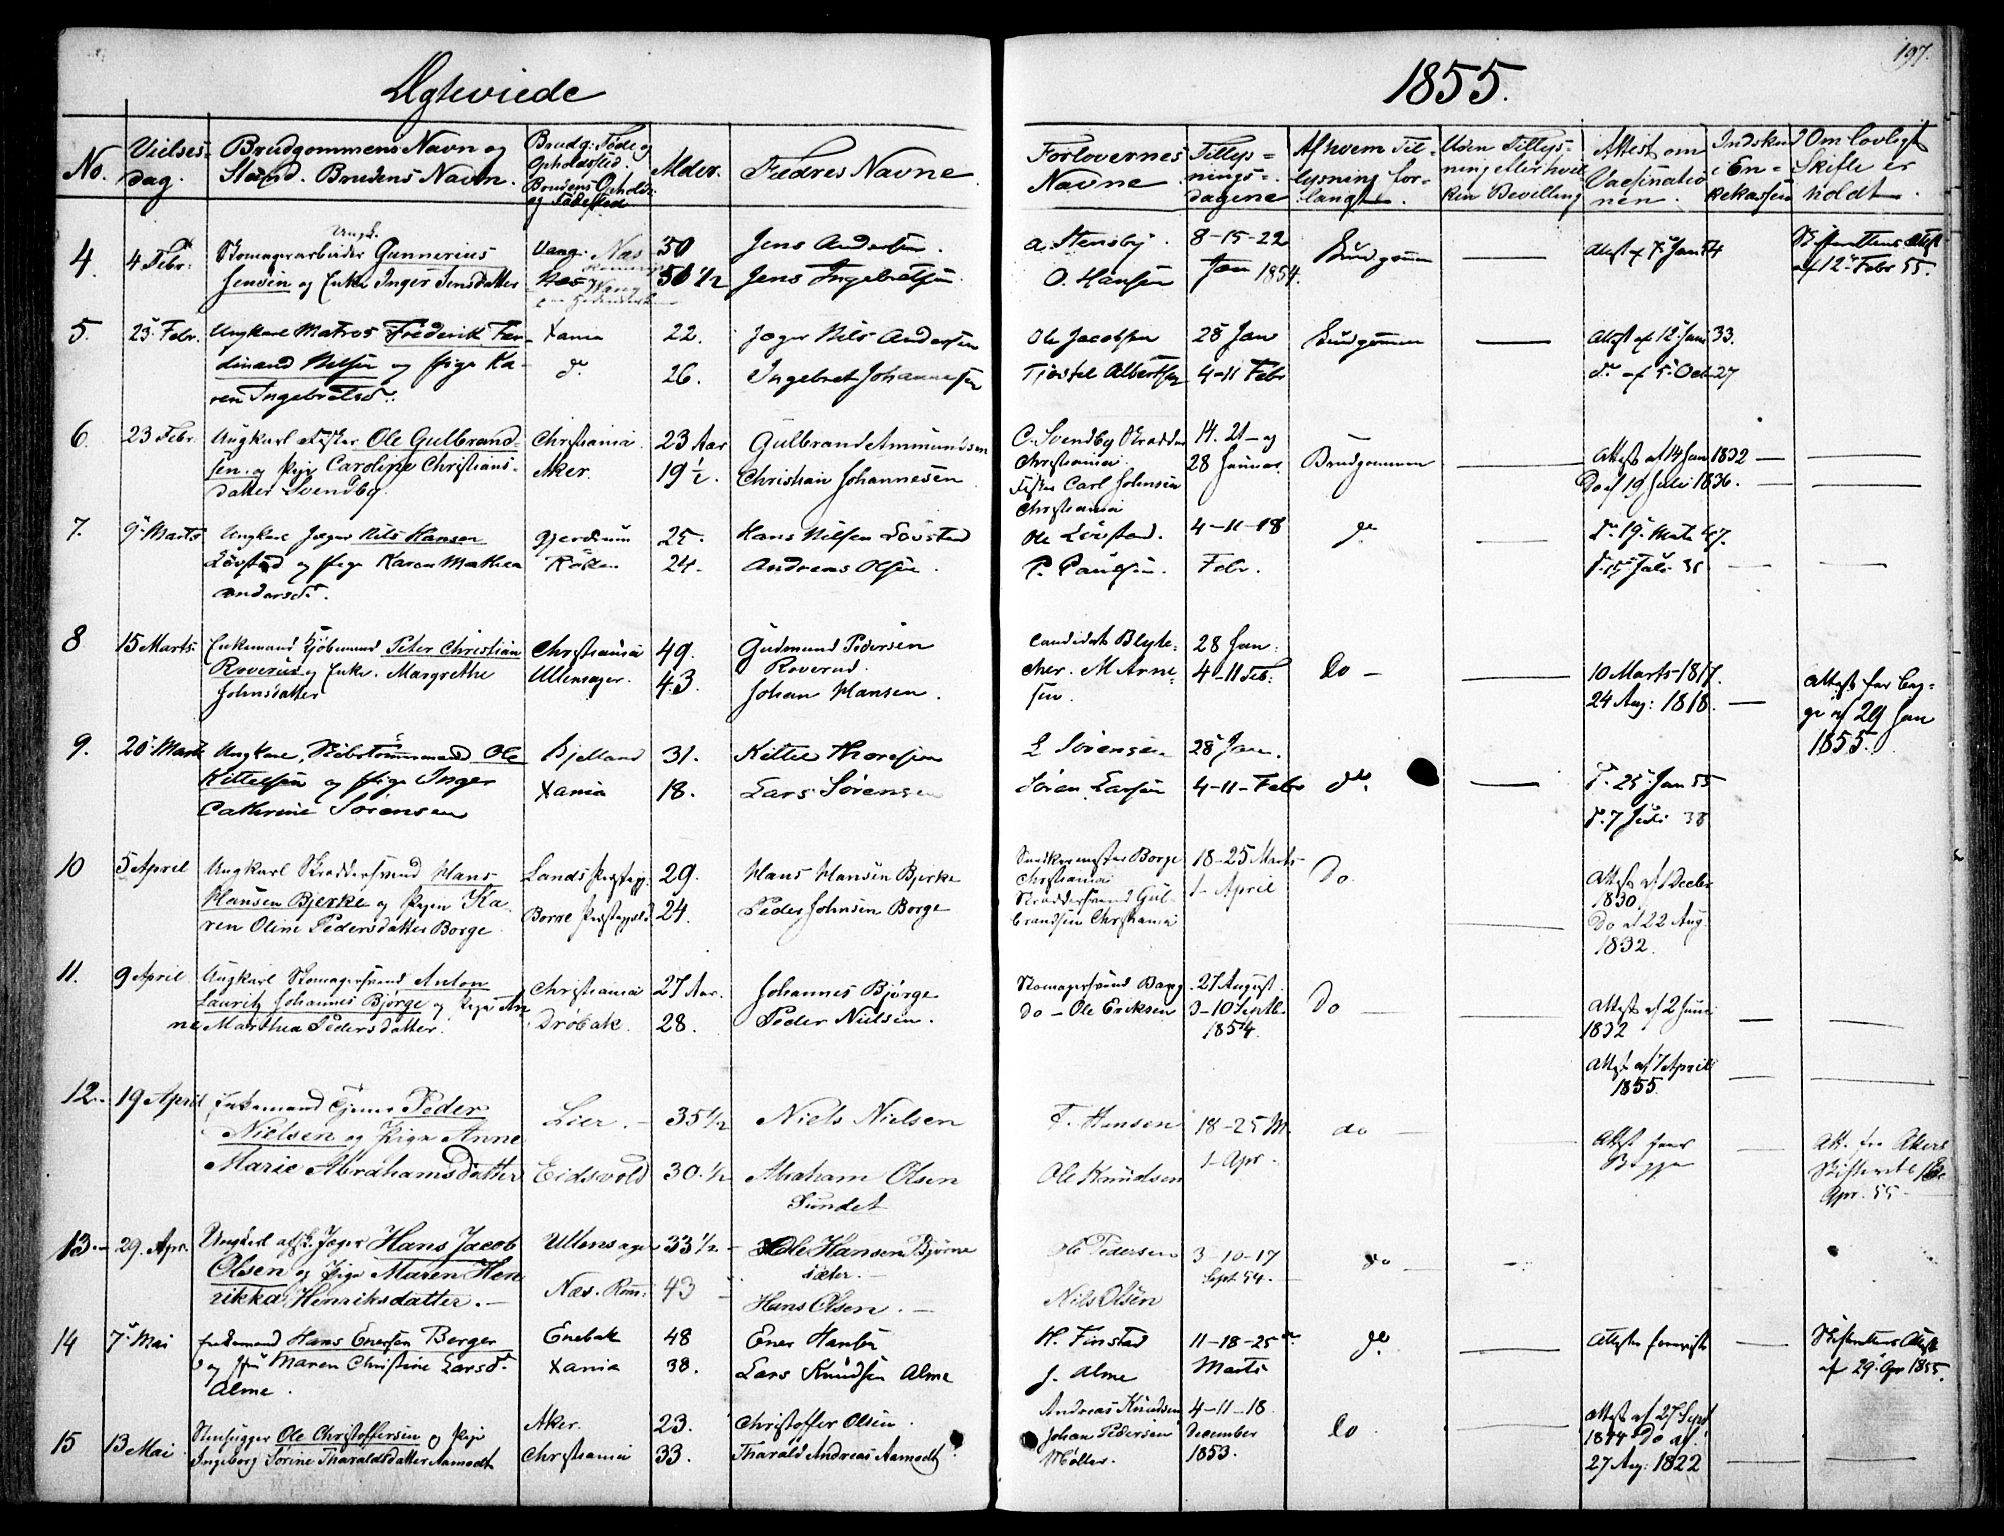 Ægteviede
1855.
197.
No.
Vielses-
dag.
Brudgommens Navn og
Stand. Brudens Navn.
Brudg: Føde og
Opholdssted.
Brudens Opholds
og Fødested
Alder.
Fædres Navne.
Forlovernes
Navne
Tillys=
nings=
dagene
Af hvem Til-
lysning for-
langt.
Uden Tillys-
ning efter hvil
ken Bevilling
Attest om
Vaccinatio
nen.
Indskud
i En=
kekassen
Om lovligt
Skifte er
holdt
4.
4 Febr:
Ungk.
Skomagerarbeider Gunnerius
Jensen og Enke Inger Jensdatter
Vang. Næs
Næs Vang
50
50 1/2
Jens Andersen.
Jens Ingebretsen.
A. Stensby.
O. Hansen
8-15-22
Jan 1854.
Brudgom
Skifterettens Attest
af 12 Febr 55.
5.
25 Febr.
Ungkarl Matros Frederik Fer-
dinand Nilsen og Pige Ka-
ren Ingebretsd.
Xania
do.
22.
26.
Jæger Nils Andersen
Ingebret Johannesen
Ole Jacobsen
Tjostel Albertsen
28 Jan
4-11 Febr
Brudgommen
Attest af 12 Juni 33.
do af 5 Oct 27
6.
23 Febr.
Ungkarl Fisker Ole Gulbrand-
sen og Pige Caroline Christians-
datter Svendby.
Christiania
Aker.
23 Aar
19 1/2.
Gulbrand Ammundsen
Christian Johannesen
C. Svendby Skrædder
Christiania
Fisker Carl Johnsen
Christiania
14. 21 - og
28 Januar.
Brudgommen
Attest af 14 Jan 1832
Do af 19 Juli 1836.
7.
9 Marts
Ungkarl Jæger Nils Hansen
Løvstad og Pige Karen Mathea
Andersd.
Gjerdrum
Røken
25.
24.
Hans Nilsen Løvstad
Andreas Olsen.
Ole Løvstad.
P. Paulsen.
4-11-18
Febr.
do
8
15 Marts.
Enkemand Kjøbmand Peter Christian
Roverud og Enke. Margrethe
Johnsdatter
Christiania
Ullensager.
49.
43.
Gudmund Pedersen
Roverud.
Johan Hansen.
Candidat Blyte-
cher. M Arne-
sen.
28 Jan.
4-11 Feb:
Do -
10 Marts-1817.
24 Aug: 1818.
Attest for Beg-
ge af 29 Jan
1855.
9.
20 Marts
Ungkarl, Skibstømmermand Ole
Kittelsen og Pige Inger
Cathrine Sørensen
Bjelland
Xania
31.
18.
Kittel Thoresen
Lars Sørensen
L Sørensen
Søren Larsen
28 Jan.
4-11-Febr
do.
do. 25 Jan 55
do. 7 Juli 38
10
5 April
Ungkarl Skræddersvend Hans
Hansen Bjerke og Pigen Ka-
ren Oline Pedersdatter Borge
Lands Præstegj.
Borre Præstegjeld
29.
24.
Hans Hansen Bjerke
Peder Johnsen Borge
Snedkermester Borge
Christiania
Skræddersvend Gul-
brandsen Christiania
18-25 Marts
1 April
Do.
Attest af 1 Decbr
1830.
Do af 22 Aug.
1832.
11.
9 April
Ungkarl Skomagersvend Anton
Lauritz Johannes Bjørge og Pige An
ne Marthea Pedersdatter.
Christiania
Drøbak.
27 Aar.
28.
Johannes Bjørge
Peder Nielsen.
Skomagersvend Bang
do - Ole Eriksen
27 August.
3-10 Septb.
1854.
Do
Attest af 2 Juni
1832
Attest af 1 April
1855.
12.
19 April
Enkemand Tjener Peder
Nielsen og Pige Anne
Marie Abrahamsdatter
Lier. -
Eidsvold
35 1/2
30 1/2
Niels Nielsen
Abraham Olsen
Sundet
T. Hansen
Ole Knudsen
18-25 M.
1 Apr.
do
Attest for
Begge
Att. fra Akers
Skifteret
Apr. 55
13.
29. Apr.
Ungkarl afsk. Jæger Hans Jacob
Olsen og Pige Maren Hen
rikka Henriksdatter.
Ullensager
Næs. Rom:
33 1/2
43
Ole Hansen Bjørne
sæter.
Hans Olsen.
Ole Pedersen
Nils Olsen
3-10-17
Sept 54.
do
14
7 Mai
Enkemand Hans Enersen Berger
og Maren Christine Larsd.
Alme.
Enebak
Xania
48
38.
Ener Hansen
Lars Knudsen Alme
H. Finstad
J. Alme
11-18-25
Marts
do.
Attester foreviste
Skifterettens Attest
af 29 Apr 1855.
15
13 Mai
Stenhugger Ole Christoffersen og Pige
Ingeborg Sørine Tharaldsdatter Aamodt
Aker.
Christiania
23.
33.
Christoffer Olsen.
Tharald Andreas Aamodt
Andreas Knudsen
Johan Pedersen
Møller.
4-11-18
December
1853.
Do
Attest af 27 Sept
1844 Do af
27 Aug: 1822